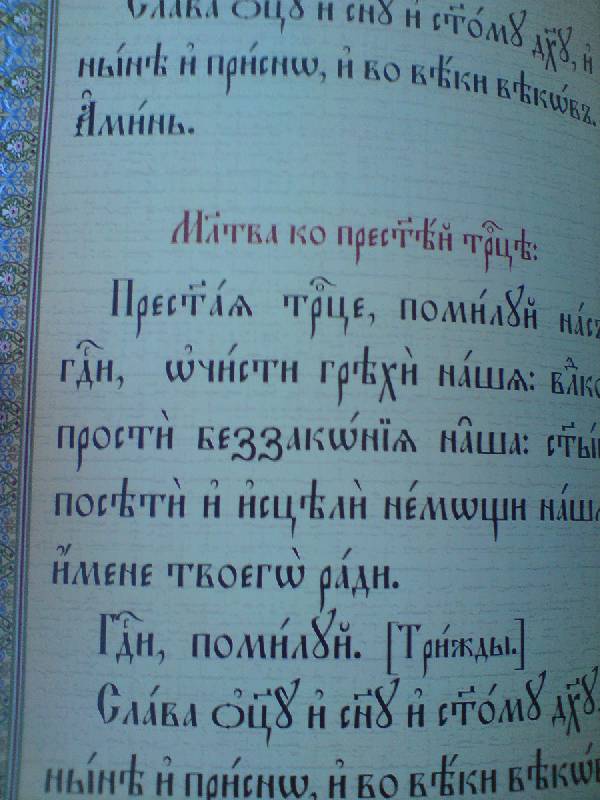 Сла́ва ѻ҆ц҃ꙋ̀ и҆ сн҃ꙋ и҆ ст҃о́мꙋ дх҃ꙋ, и҆
ны́нѣ и҆ при́снѡ, и҆ во вѣ́ки вѣкѡ́въ.
А҆ми́нь.
Мл҃тва ко прест҃ѣ́й трⷪ҇цѣ:
Прест҃а́ѧ трⷪ҇це, поми́лꙋй на́съ
гдⷭ҇и, ѡ҆чи́сти грѣхѝ на́шѧ:
простѝ беззакѡ́нїѧ на̑ша:
посѣтѝ и҆ и҆сцѣлѝ не́мѡщи на́шѧ
и҆́мене твоегѡ̀ ра́ди.
Гдⷭ҇и, поми́лꙋй. [Три́жды.]
Сла́ва ѻ҆ц҃ꙋ̀ и҆ сн҃ꙋ и҆ ст҃о́мꙋ дх҃ꙋ,
ны́нѣ и҆ при́снѡ, и҆ во вѣ́ки вѣкѡ́въ